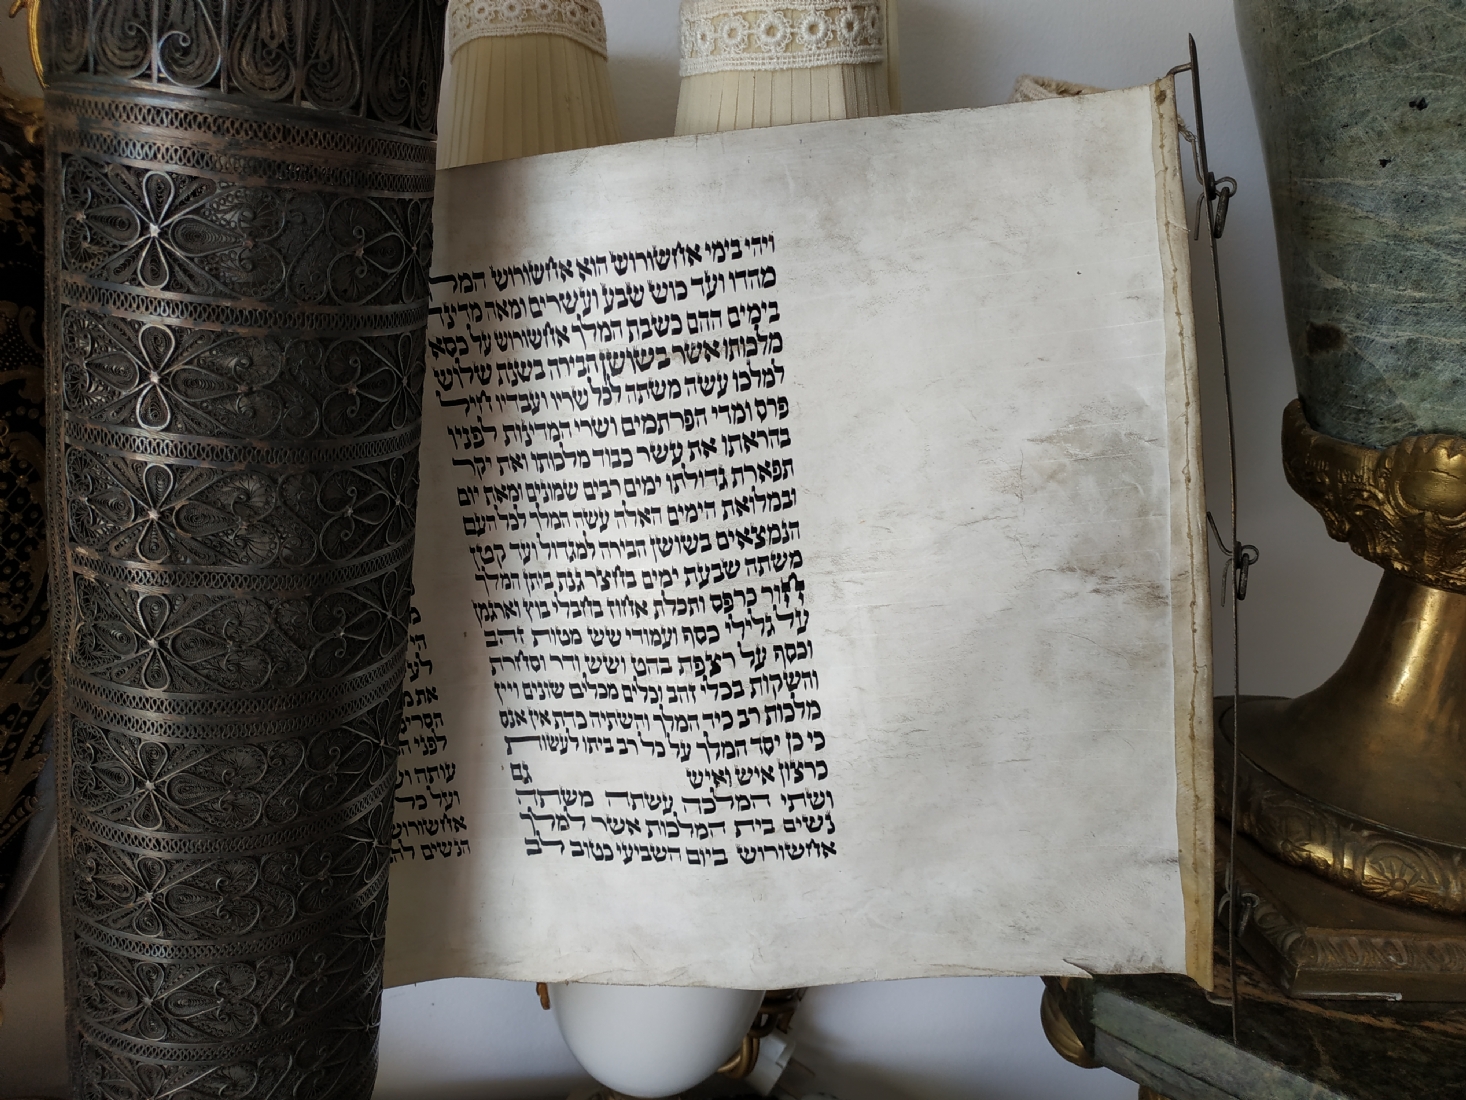 ויהי בימי אחשורוש הוא אחשורוש המלך
מהדו ועד כוש שבע ועשרים ומאה מדינה
בימים ההם כשבת המלך אחשורוש על כסא
מלכותו אשר בשושן הבירה בשנת שלוש
למלכו עשה משתה לכל שריו ועבדיו חיל
פרס ומדי הפרתמים ושרי המדינות לפניו
בהראתו את עשר כבוד מלכותו ואת יקר
תפארת גדולתו ימים רבים שמונים ומאת יום
ובמלואת הימים האלה עשה המלך לכל העם
הנמצאים בשושן הבירה למגדול ועד קטן
משתה שבעת ימים בחצר גנת ביתן המלך
חור כרפס ותכלת אחוז בחבלי בוץ וארגמן
על גלילי כסף ועמודי שש מטות זהב
וכסף על רצפת בהט ושש ודר וסחרת
והשקות בכלי זהב וכלים מכלים שונים ויין
מלכות רב כיד המלך והשתיה כדת אין אנס
כי כן יסד המלך על כל רב ביתו לעשות
כרצון איש ואיש גם
ושתי המלכה עשתה משתה
נשים בית המלכות אשר למלך
אחשורוש ביום השביעי כטוב לב
את
לפני
ועל כל
אחשורוש
הנשים